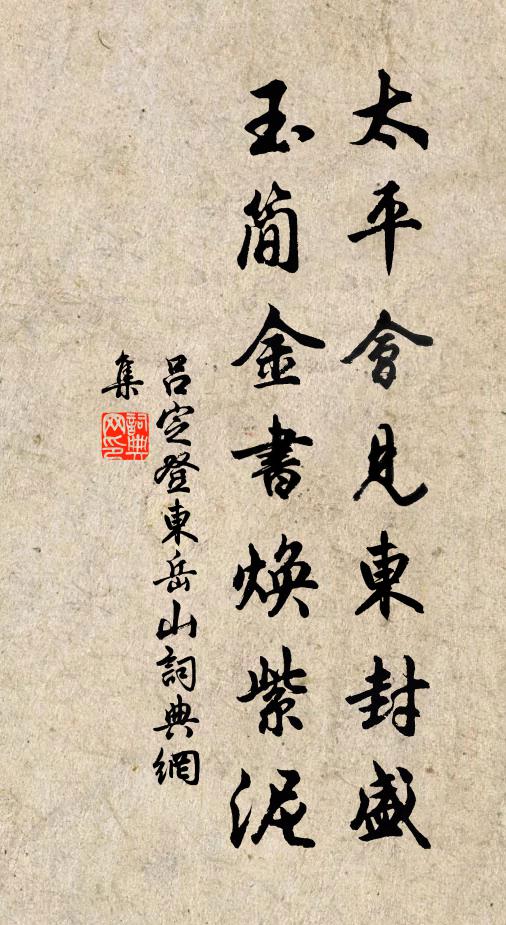 太平會見東封盛
玉簡金書煥紫泥
呂定登東岳山詞典網
集
詞典
网印